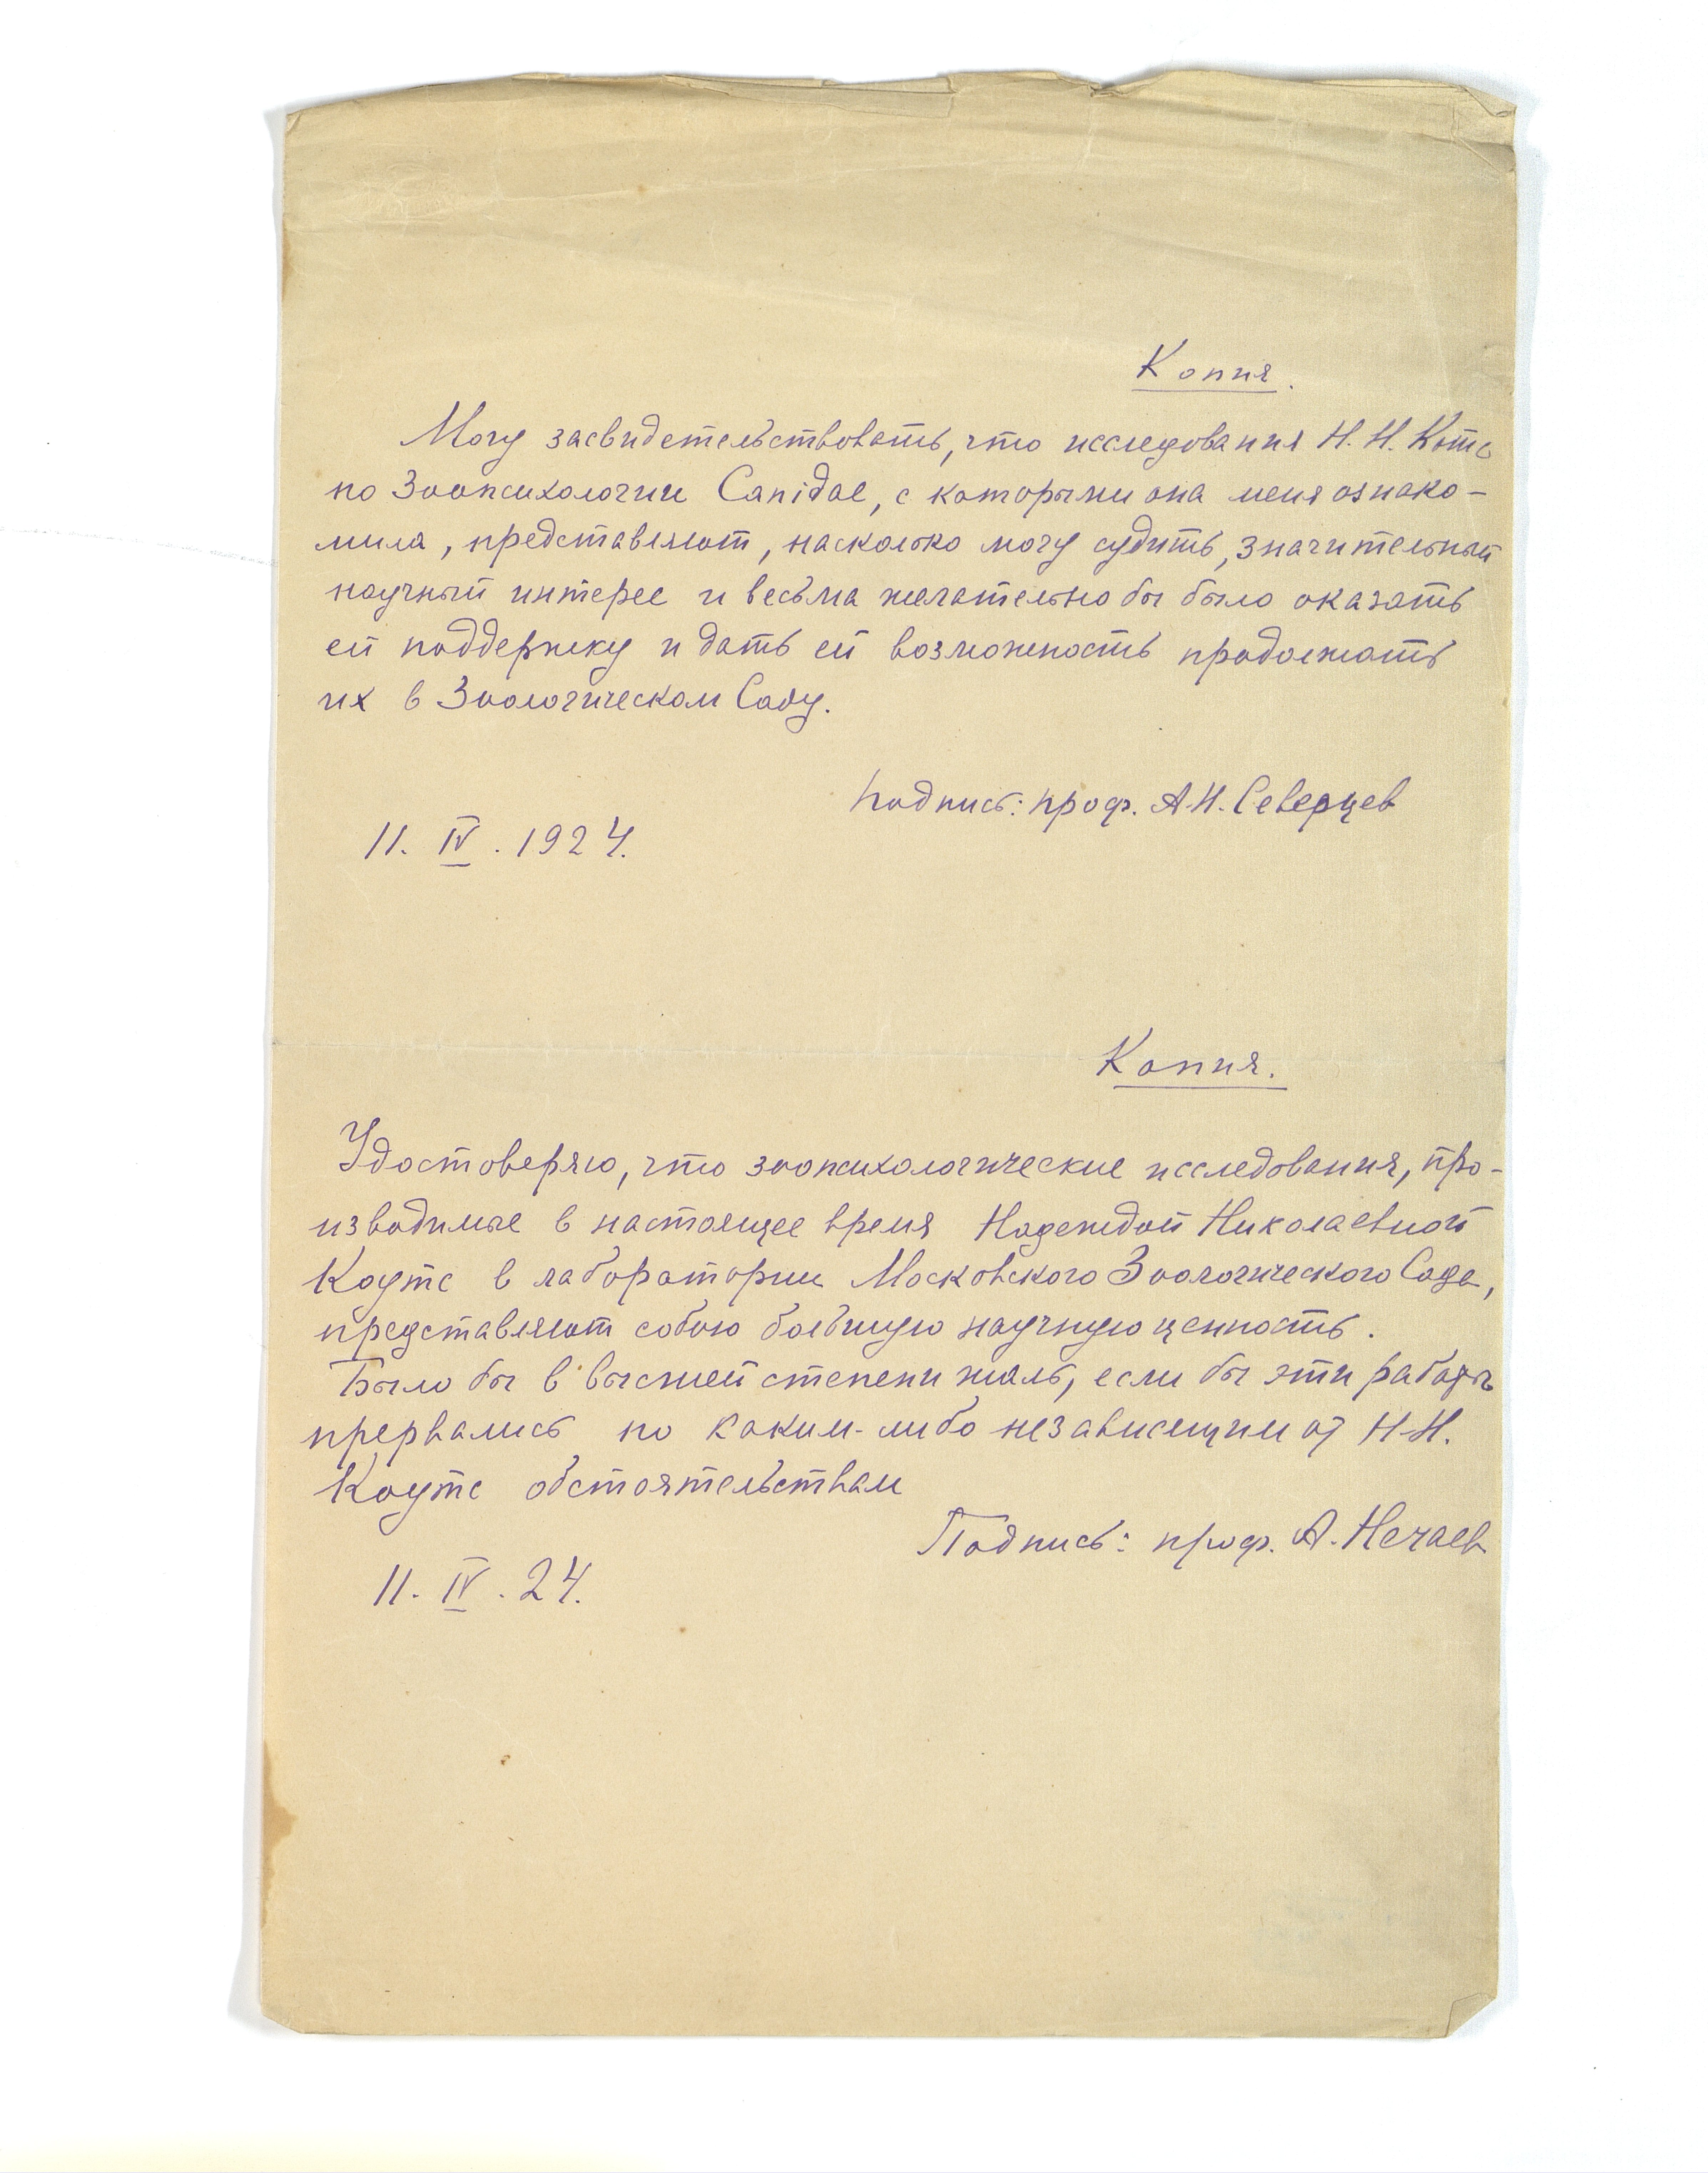 Копия.
Могу засвидетельствовать, что исследования Н. Н. Котс
по Зоопсихологии Canidae, с которыми она меня ознако-
мила, представляют, насколько могу судить, значительный
научный интерес и весьма желательно бы было оказать
ей поддержку и дать ей возможность продолжать
их в Зоологическом Саду.
Подпись: проф. А.Н. Северцев
11. IV. 1924.
Копия.
Удостоверяю, что зоопсихологические исследования, про-
изводимые в настоящее время Надеждой Николаевной
Коутс в лаборатории Московского Зоологического Сада,
представляют собою большую научную ценность.
Было бы в высшей степени жаль, если бы эти работы
прервались по каким-либо независящим от Н.Н.
Коутс обстоятельствам
Подпись: проф. А. Нечаев
11. IV. 24.